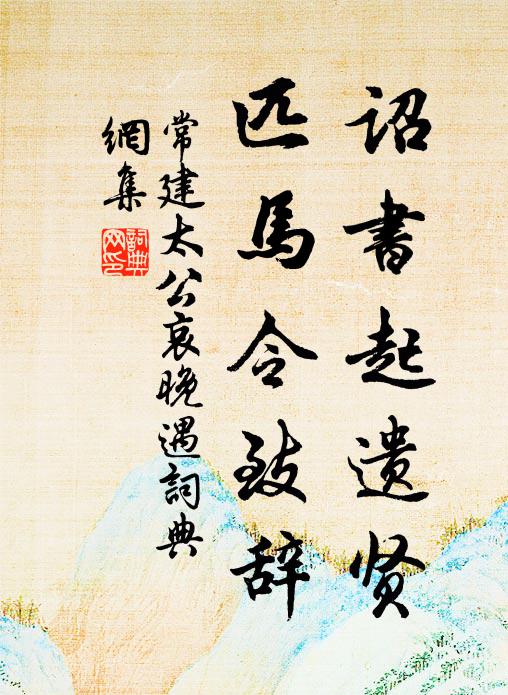 诏书起遗贤
匹马令致辞
常建太公哀晚遇詞典
網集
詞典
网印